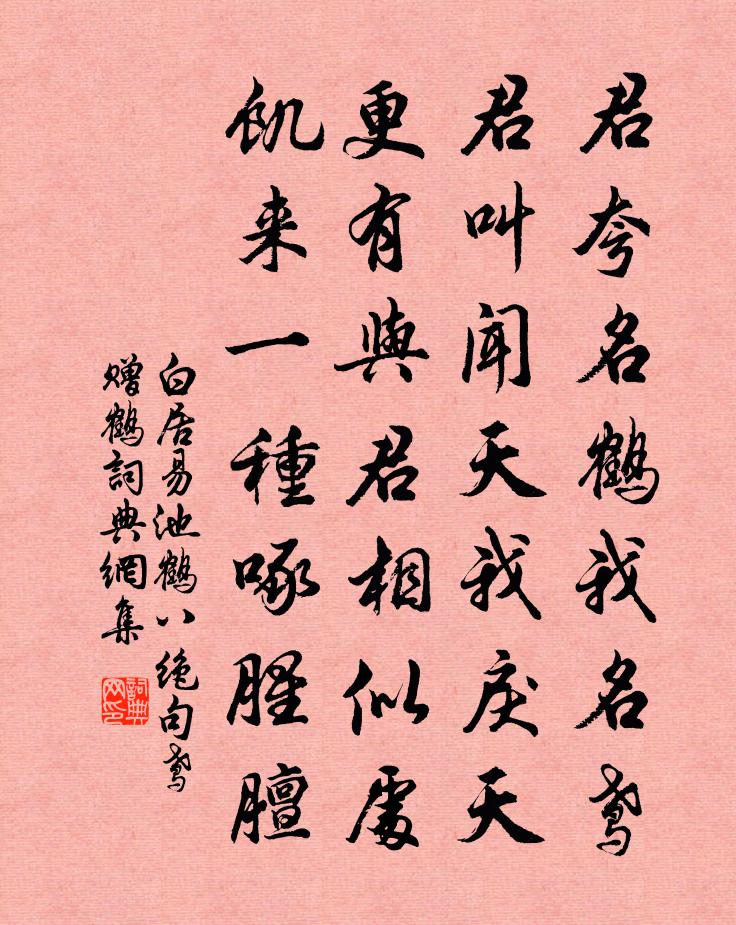 君夸名鹤我名鸢
君叫闻天我戾天
更有與君相似處
飢来一種啄腥膻
白居易池鹤八绝句鸢
赠鹤詞典網集
詞典网印